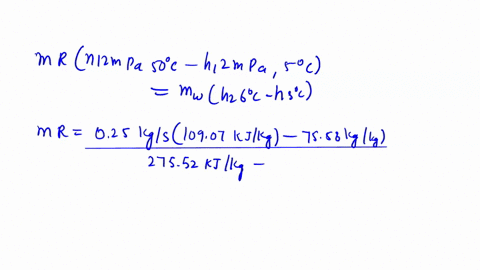 mR (h12mPa 50°c - h,2mPa, 5°c)
= mw (h26°c - h5°c)
mR = 0.25 kg/s (109.07 KJ/kg) - 75.58 kg/kg)
275.52 KJ/kg -